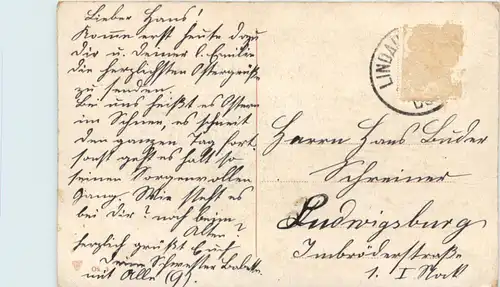 Lieber Hans!
Komme erst heute dazu
dir u. deiner l. Familie
die herzlichsten Ostergrüße
zu senden.
Bei uns heißt es Ostern
im Schnee, es schneit
den ganzen Tag fort.
sonst geht es halt so
seinen Sorgenvollen
Gang. Wie steht es
bei Dir? noch beim
Alten?
herzlich grüßt Euch
Deine Schwester Babette
mit Alle (9).
LINDAU
Herrn Hans Luder
Schreiner
Ludwigsburg
Imbröderstraße
1. I Stock